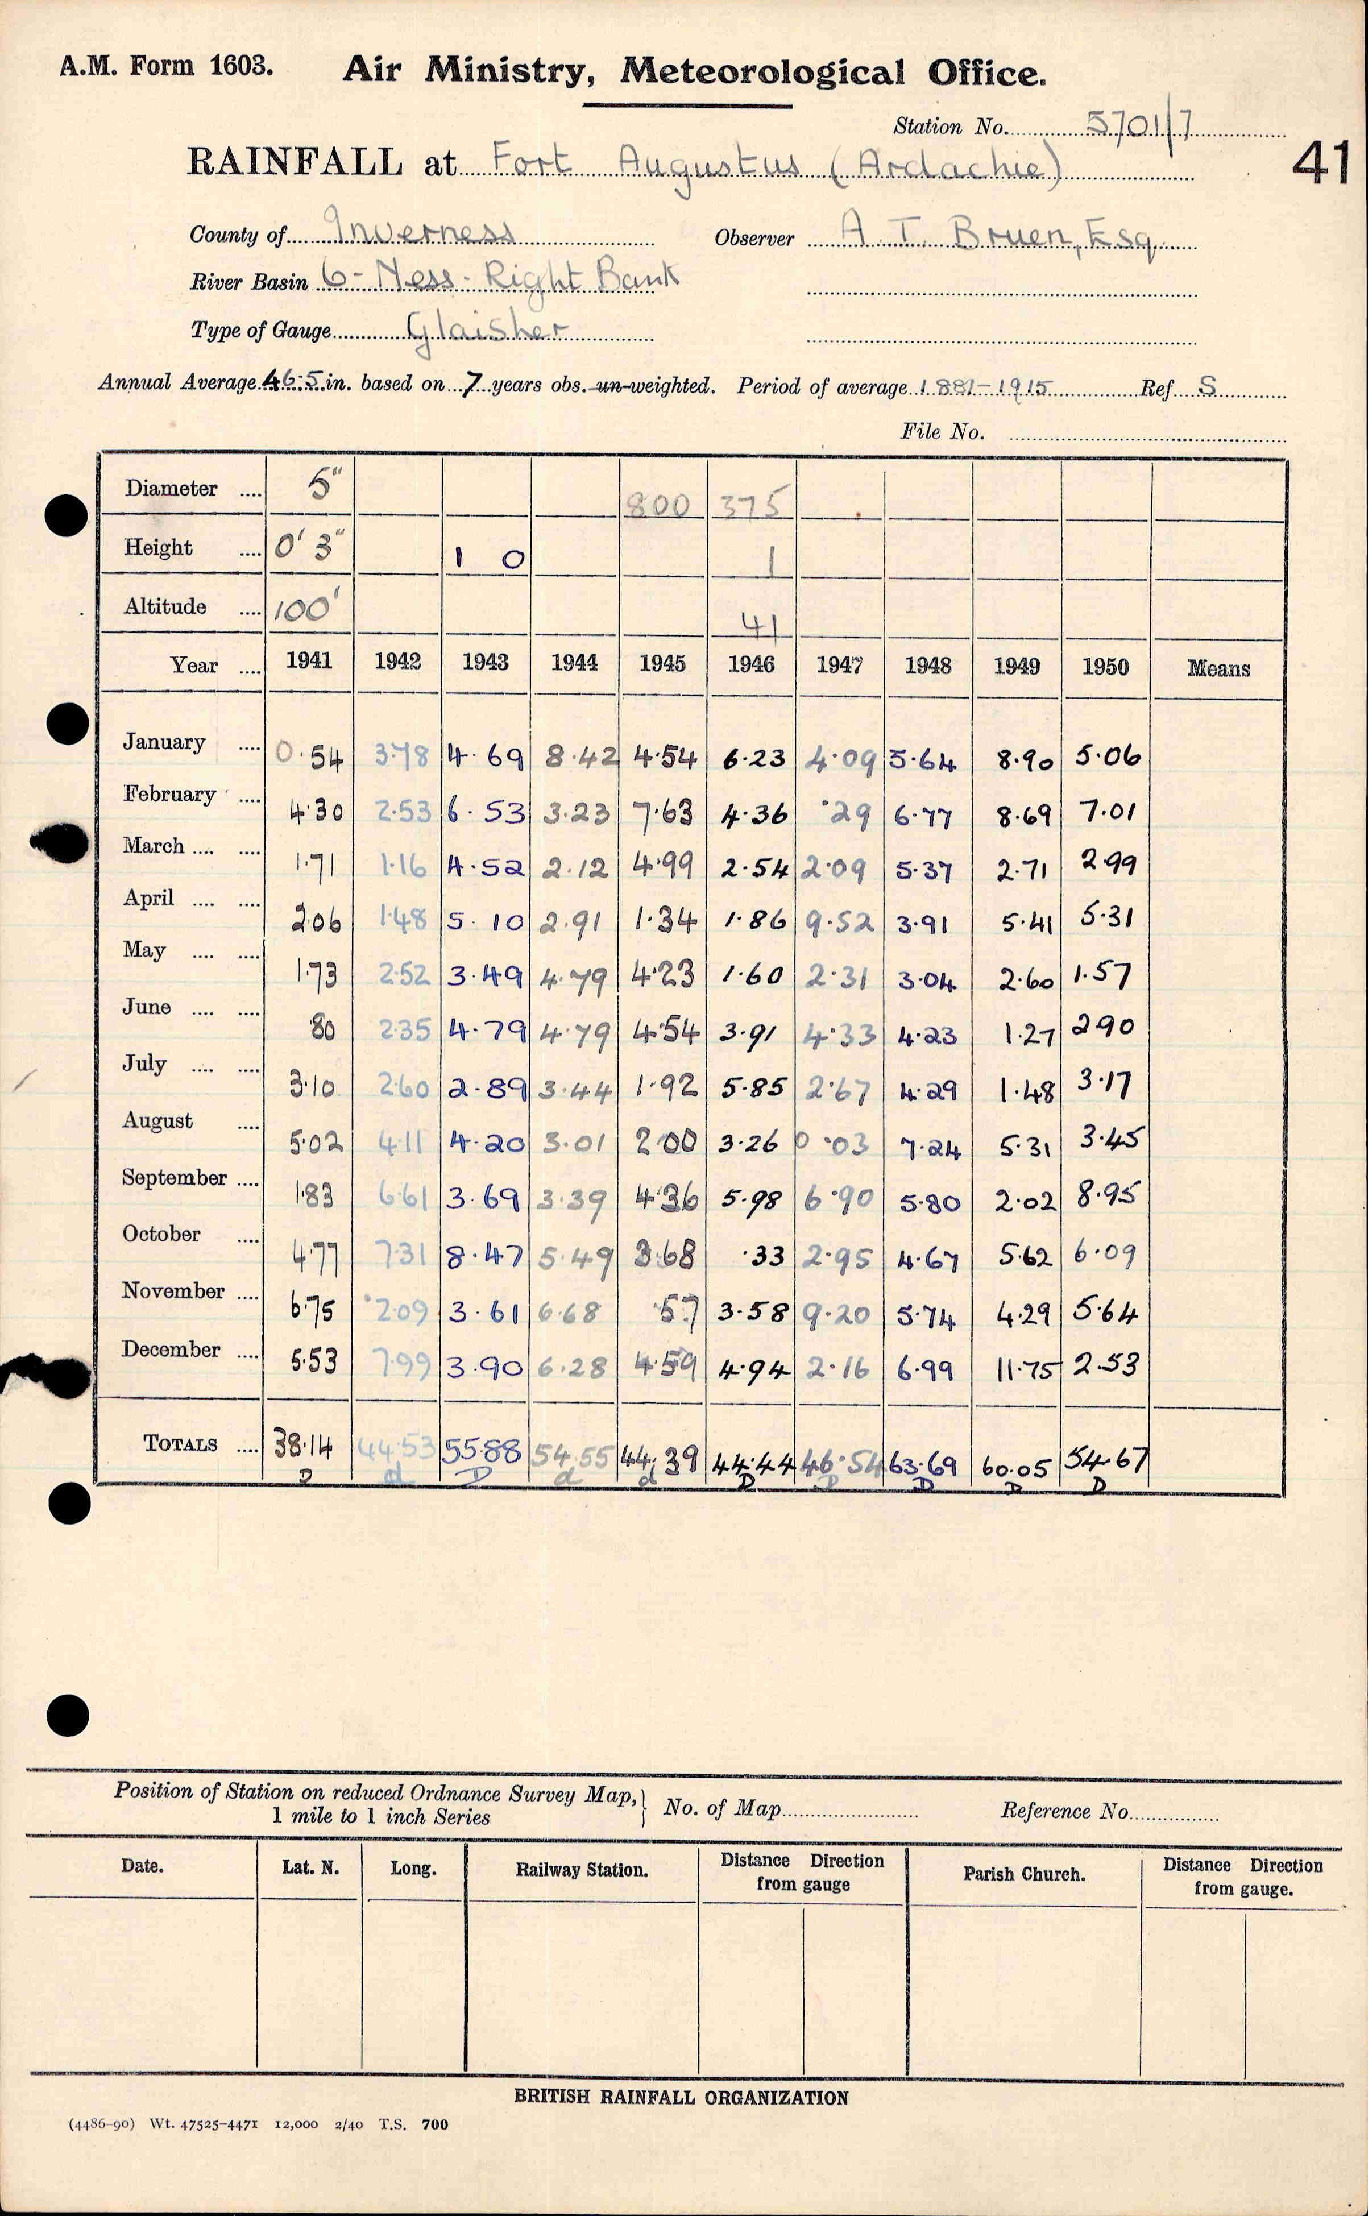 A.M. Form 1603. Air Ministry, Meteorological Office.
Station No. 5701/7
RAINFALL at Fort Augustus (Ardachie) 41
County of Inverness Observer A. T. Bruen, Esq.
River Basin 6 - Ness - Right Bank
Type of Gauge Glaisher
Annual Average 46.5 in. based on 7 years obs. un-weighted. Period of average 1881-1915 Ref S
File No.
Diameter .... 5" 800 375
Height .... 0' 3" 1 0 1
Altitude .... 100' 41
Year .... 1941 1942 1943 1944 1945 1946 1947 1948 1949 1950 Means
January .... 0.54 3.78 4.69 8.42 4.54 6.23 4.09 5.64 8.90 5.06
February .... 4.30 2.53 6.53 3.23 7.63 4.36 .29 6.77 8.69 7.01
March .... .... 1.71 1.16 4.52 2.12 4.99 2.54 2.09 5.37 2.71 2.99
April .... .... 2.06 1.48 5.10 2.91 1.34 1.86 9.52 3.91 5.41 5.31
May .... .... 1.73 2.52 3.49 4.79 4.23 1.60 2.31 3.04 2.60 1.57
June .... .... .80 2.35 4.79 4.79 4.54 3.91 4.33 4.23 1.27 2.90
July .... .... 3.10 2.60 2.89 3.44 1.92 5.85 2.67 4.29 1.48 3.17
August .... 5.02 4.11 4.20 3.01 2.00 3.26 0.03 7.24 5.31 3.45
September .... 1.83 6.61 3.69 3.39 4.36 5.98 6.90 5.80 2.02 8.95
October .... 4.77 7.31 8.47 5.49 3.68 .33 2.95 4.67 5.62 6.09
November .... 6.75 2.09 3.61 6.68 .57 3.58 9.20 5.74 4.29 5.64
December .... 5.53 7.99 3.90 6.28 4.59 4.94 2.16 6.99 11.75 2.53
TOTALS .... 38.14 44.53 55.88 54.55 44.39 44.44 46.54 63.69 60.05 54.67
D d D d d D D D D D
Position of Station on reduced Ordnance Survey Map, } No. of Map Reference No.
1 mile to 1 inch Series
Date. Lat. N. Long. Railway Station. Distance Direction from gauge Parish Church. Distance Direction from gauge.
BRITISH RAINFALL ORGANIZATION
(4486-90) Wt. 47525-4471 12,000 2/40 T.S. 700